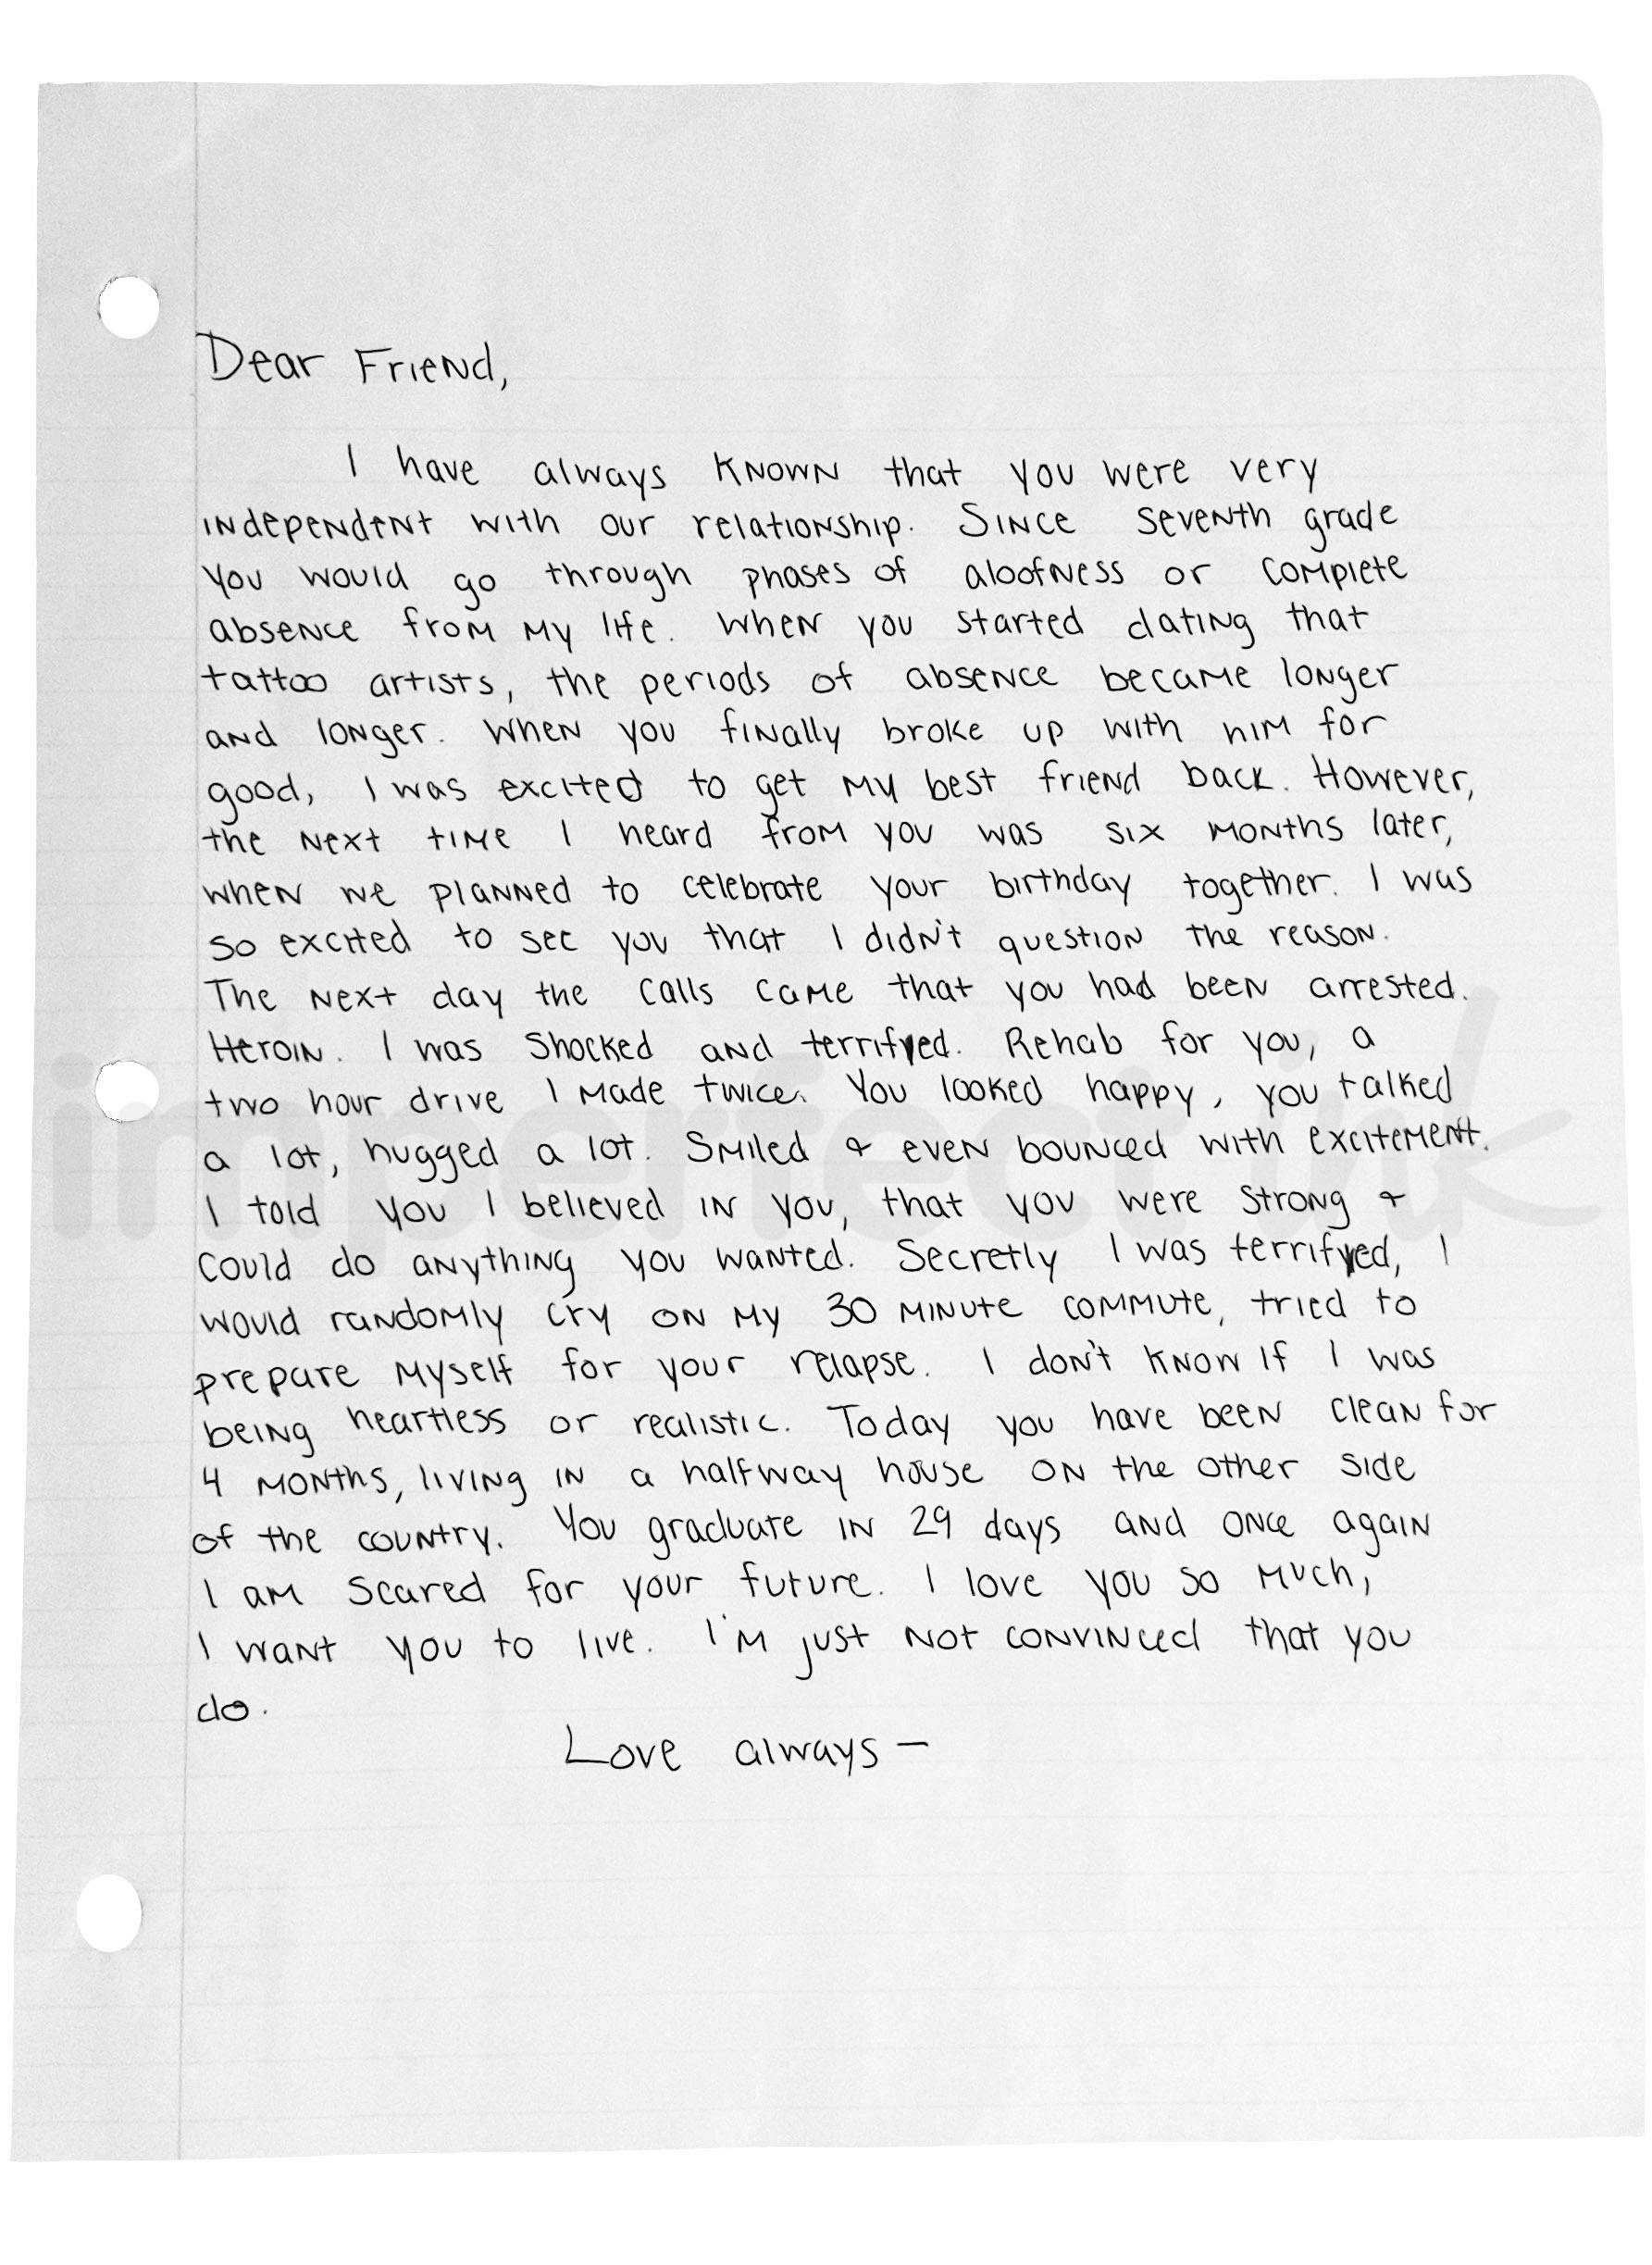 Dear Friend,
I have always known that you were very
independent with our relationship. Since seventh grade
you would go through phases of aloofness or complete
absence from my life. When you started dating that
tattoo artists, the periods of absence became longer
and longer. When you finally broke up with him for
good, I was excited to get my best friend back. However,
the next time I heard from you was six months later,
when we planned to celebrate your birthday together. I was
so excited to see you that I didn't question the reason.
The next day the calls came that you had been arrested.
Heroin. I was shocked and terrifyed. Rehab for you, a
two hour drive I made twice. You looked happy, you talked
a lot, hugged a lot. Smiled & even bounced with excitement.
I told you I believed in you, that you were strong &
could do anything you wanted. Secretly I was terrifyed, I
would randomly cry on my 30 minute commute, tried to
prepare myself for your relapse. I don't know if I was
being heartless or realistic. Today you have been clean for
4 months, living in a halfway house on the other side
of the country. You graduate in 29 days and once again
I am scared for your future. I love you so much,
I want you to live. I'm just not convinced that you
do.
Love always —
imperfect ink